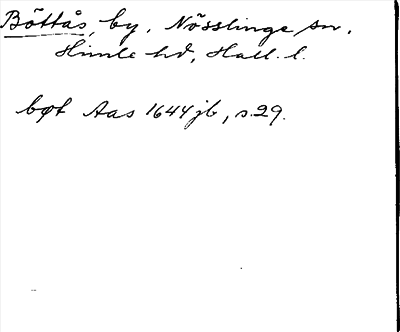 Böttås, by, Nösslinge sn,
Himle hd, Hall. l.
bøt Aas 1644 jb, s.29.